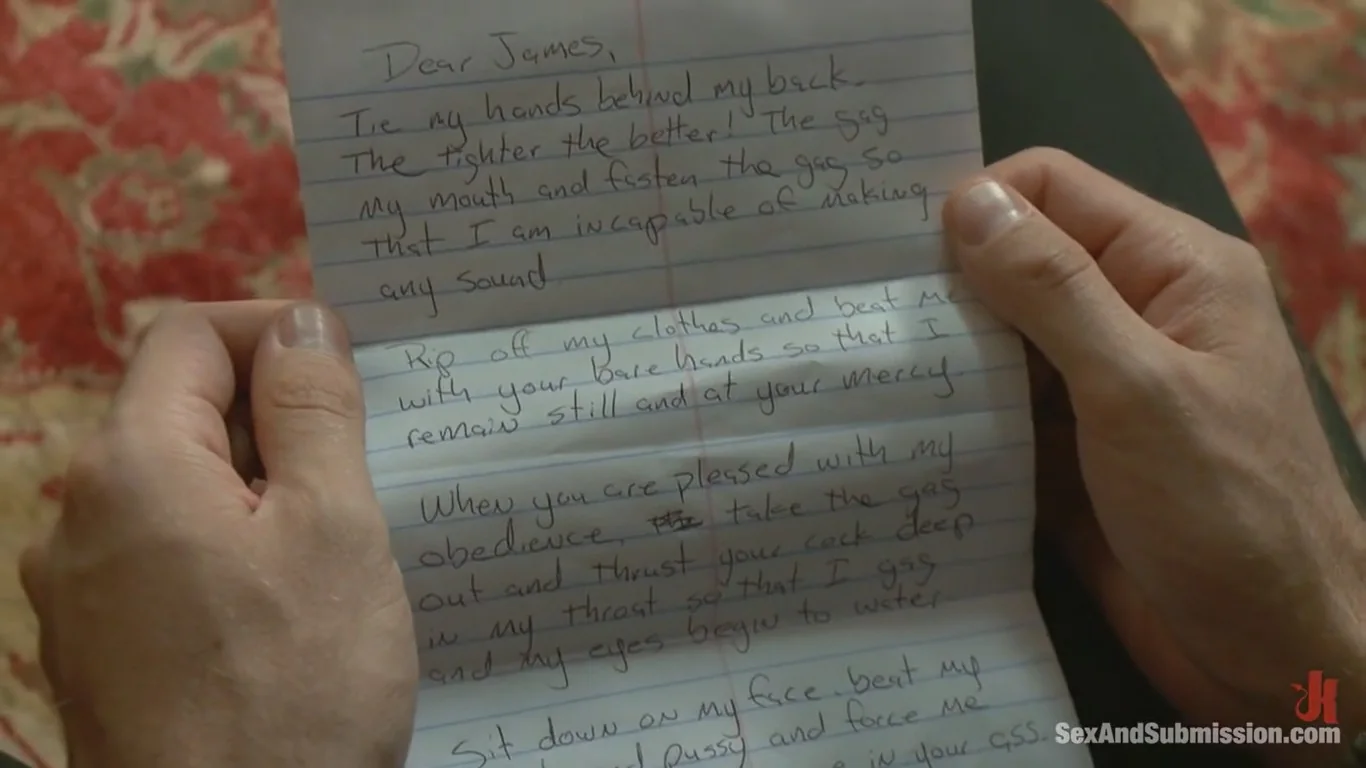 Dear James,
Tie my hands behind my back.
The tighter the better! The gag
my mouth and fasten the gag so
that I am incapable of making
any sound
Rip off my clothes and beat me
with your bare hands so that I
remain still and at your mercy.
When you are pleased with my
obedience, take the gag
out and thrust your cock deep
in my throat so that I gag
and my eyes begin to water
Sit down on my face. beat my
pussy and force me
in your ass.
SexAndSubmission.com